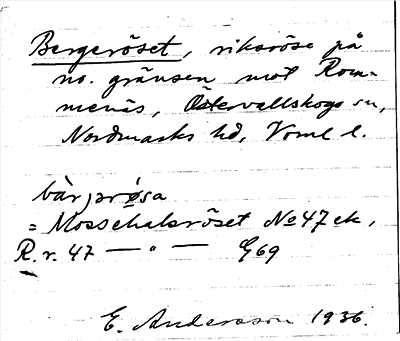 Bergeröset, riksröse på
no. gränsen mot Rom-
menäs, Östervallskogs sn,
Nordmarks hd, Verml l.
bàrjrø̀sa
= Mossehalsröset No 47 ek,
R. r. 47 — " — G 69
E. Anderson 1936.